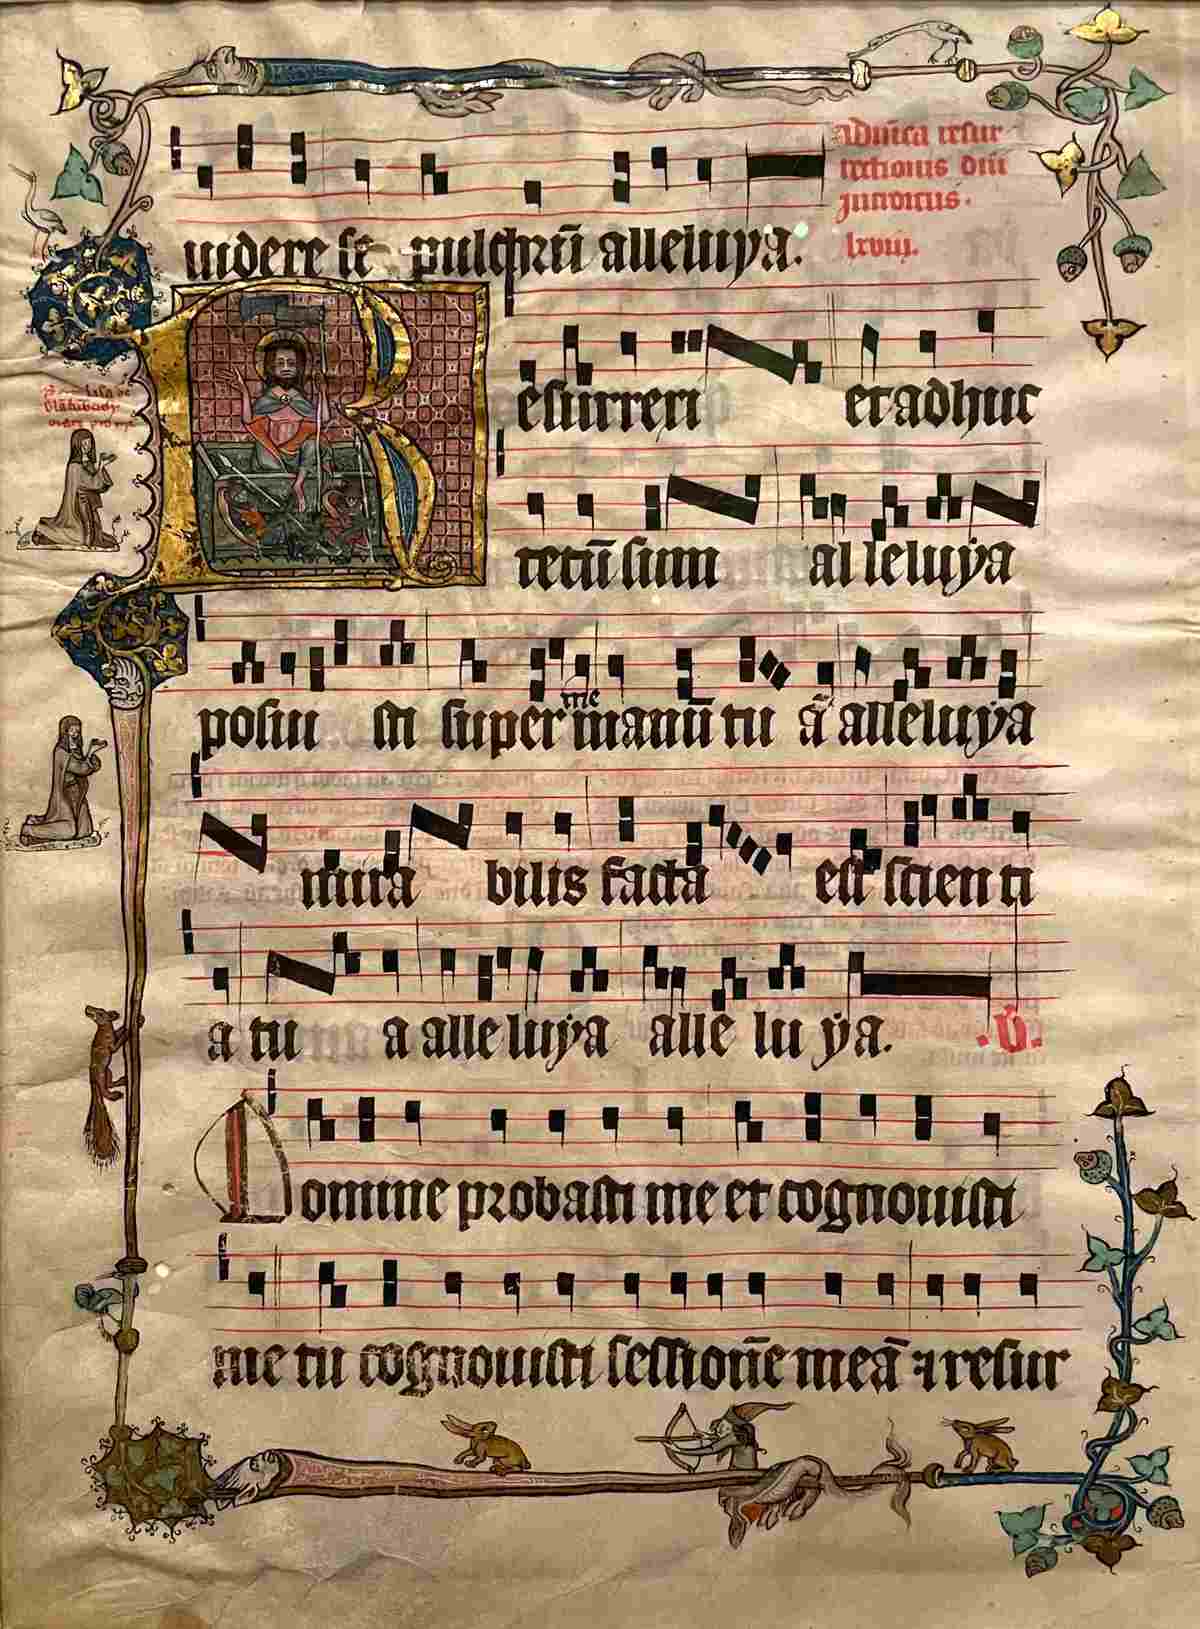 uidere se pulchrū alleluya.
ad mĩca resur
rectionis dñi
Introitus.
lxviij.
Resurrexi et adhuc
tecū sum alleluya
posui sti super me manū tu ā alleluya
mira bilis facta est scienti
a tu a alleluya alle lu ya. .V̄.
Domine probasti me et cognouisti
me tu cognouisti sessionē meā ⁊ resur